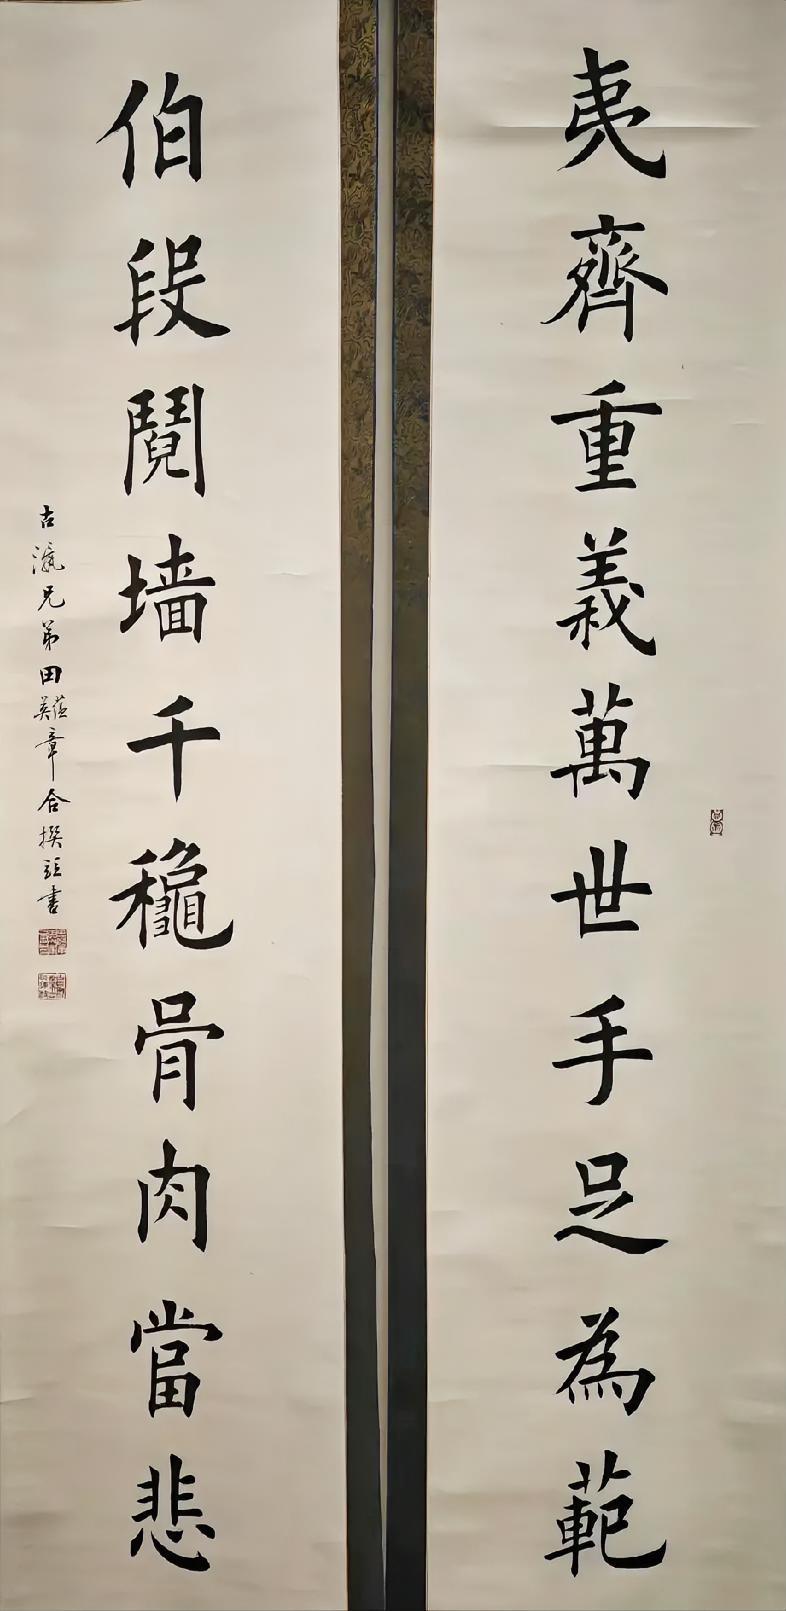 夷齊重義萬世手足為範
伯段鬩墙千穐骨肉當悲
古瀛兄弟田英蓲章合撰並書